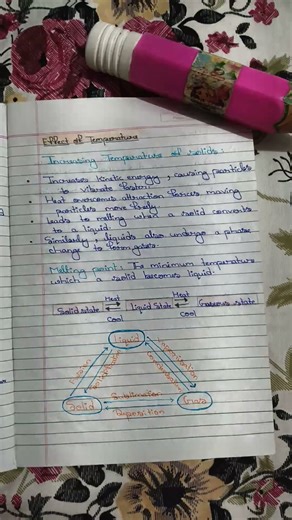 Effect of Temperature
Increasing Temperature of solids:
• Increases kinetic energy, causing particles
to vibrate faster.
• Heat overcomes attraction forces moving
particles move freely
• Leads to melting when a solid converts
to a liquid.
• Similarly, liquids also undergo a phase
change to form gases.
Melting point: Is minimum temperature
which a solid becomes liquid.
Solid state Heat Cool Liquid State Heat Cool Gaseous state
Liquid
Fusion
Solidification
Vaporization
Condensation
Solid
Sublimation
Deposition
Gas